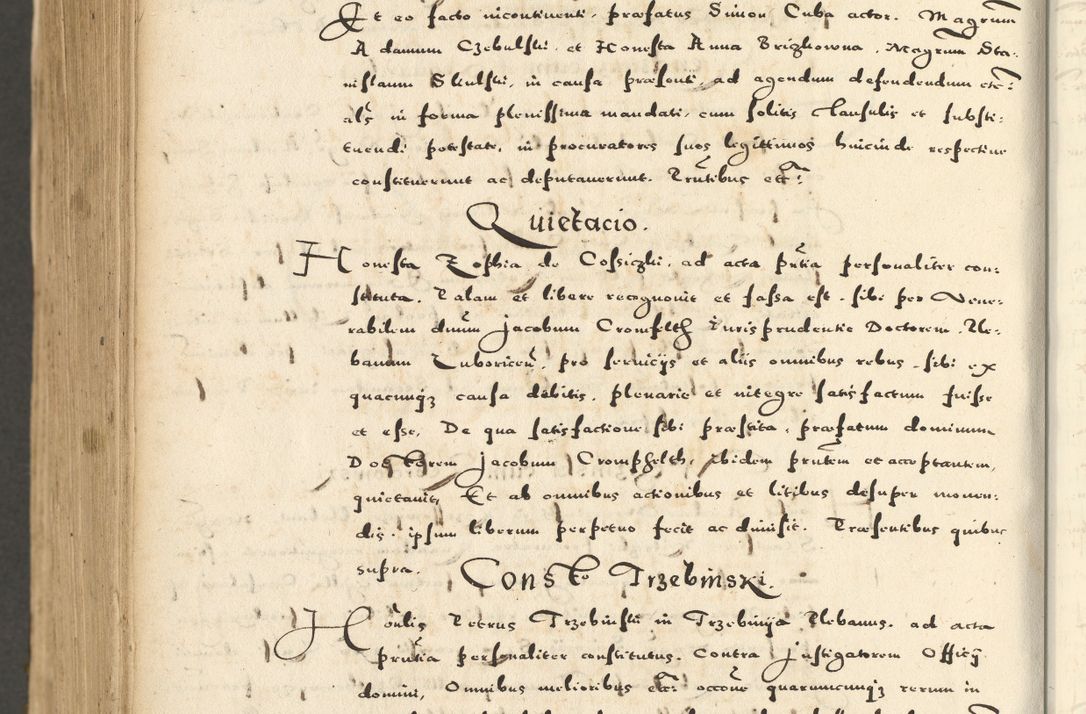 Et eo facto incontinenti, præfatus Simon Cuba actor. Magrum
Adamum Czebulski, et Honesta Anna Brigkowna, Magrum Sta-
nislaum Skulski, in causa præsenti, ad agendum defendendum etc:
als in forma plenissima mandati, cum solitis clausulis et substi-
tuendi potestate, in procuratores suos legittimos hincinde respective
constituerunt ac deputaverunt. Pntibus etc:
Quietacio.
Honesta Zophia de Cossiczki, ad acta pntia personaliter con-
stituta. Palam et libere recognovit et fassa est, sibi per Vene-
rabilem dnum Jacobum Cromfelth Juris prudentie Doctorem, Ple-
banum Luboricen, pro servicijs et aliis omnibus rebus, sibi ex
quacunq3 causa debitis, plenarie et integre satisfactum fuisse
et esse. De qua satisfactione sibi præstita, præfatum dominum
Doctorem Jacobum Cromphelth, ibidem pntem et acceptantem,
quietavit, Et ab omnibus actionibus et litibus desuper moven-
dis, ipsum liberum perpetuo fecit ac dimisit. Præsentibus quibus
supra.
Consto Trzebinski.
Honlis Petrus Trzebinski in Trzebinija Plebanus, ad acta
pntia personaliter constitutus. Contra Instigatorem Officij
domini, Omnibus melioribus etc: occone quarumcunq3 rerum in